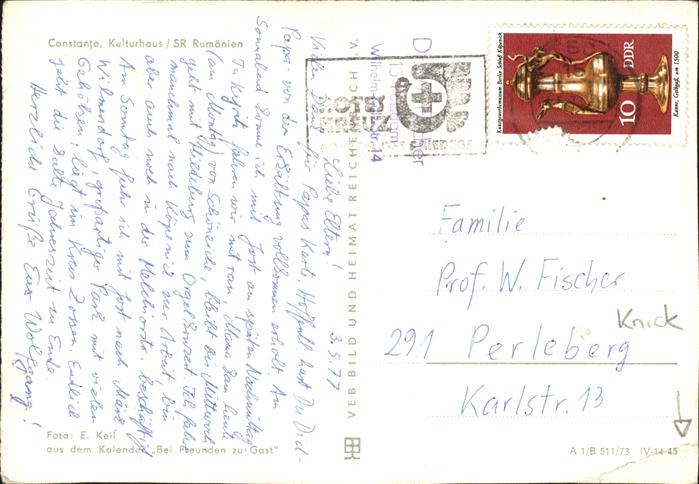 Constanța, Kulturhaus / SR Rumänien
3.5.77
Liebe Eltern!
Vielen Dank für Papas Karte. Hoffentl. hast Du Dich
Papa von der Erkältung vollkommen erholt. Am
Sonnabend konnte ich mit Jost am späten Nachmittag
fahren wir mit ran, Mama
(am Montag) von Schöneiche, bleibt bis Mittwoch
geht mit Heidelberg zum Orgelkonzert. Ich fahre
manchmal nach Köpenick zur Arbeit, bin
aber auch noch in der beschäftigt.
Am Sonntag fuhr ich mit Jost nach Märk.
Wilmersdorf, großartiger Park mit vielen
liegt im Kreis Zossen. Endlich
geht die kalte Jahreszeit zu Ende.
Herzliche Grüße Euer Wolfgang!
Foto: E. Keil
aus dem Kalender „Bei Freunden zu Gast"
VEB BILD UND HEIMAT REICHENBACH i. V.
Wilhelm
14
Kunstgewerbemuseum Berlin Schloß Köpenick
10
DDR
Kanne, Goldguß, um 1500
Familie
Prof. W. Fischer
291 Perleberg
Karlstr. 13
Knick
A 1/B 511/73 IV-14-45